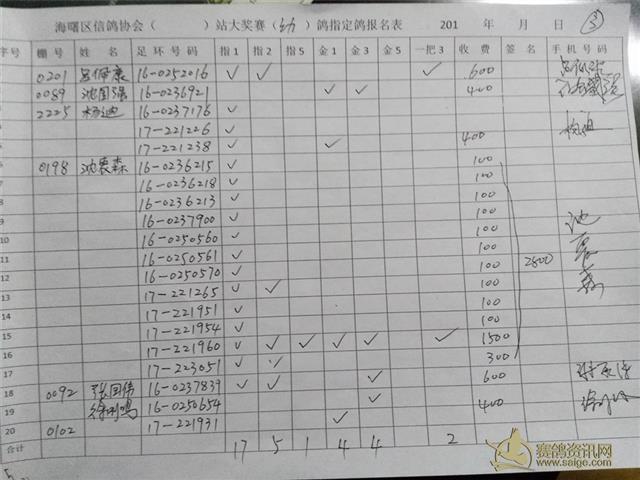 海曙区信鸽协会（ ）站大奖赛（幼）鸽指定鸽报名表 201 年 月 日 ③
序号 棚号 姓名 足环号码 指1 指2 指5 金1 金3 金5 一把3 收费 签名 手机号码
0201 吕佩康 16-0252016 ✓ ✓ ✓ 600
0089 沈国强 16-0236921 ✓ ✓ 400
2225 杨迪 16-0237176 ✓
17-221226 ✓
17-221238 ✓ ✓ 400 杨迪
0198 池震森 16-0236215 ✓ 100
16-0236218 ✓ 100
16-0236213 ✓ 100
16-0237900 ✓ 100
10 16-0250560 ✓ 100
11 16-0250561 ✓ 100 2800 池震森
12 16-0250570 ✓ 100
13 17-221265 ✓ ✓
14 17-221951 ✓ 100
15 17-221954 ✓ 100
16 17-221960 ✓ ✓ ✓ ✓ ✓ ✓ 1500
17-223051 ✓ ✓ 300
18 0092 张国伟 16-0237839 ✓ ✓ ✓ 600
19 16-0250654 ✓ 400
20 0102 17-221931 ✓
合计 17 5 1 4 4 2
赛鸽资讯网
www.saige.com